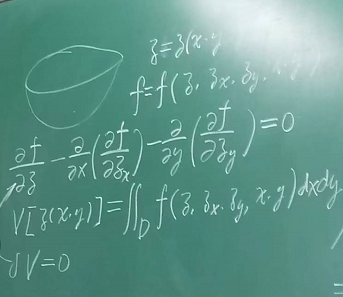 z=z(x,y
f=f(z, z_x, z_y, x, y)
∂f/∂z - ∂/∂x(∂f/∂z_x) - ∂/∂y(∂f/∂z_y)=0
V[z(x,y)]=∬_D f(z, z_x, z_y, x, y)dxdy
δV=0